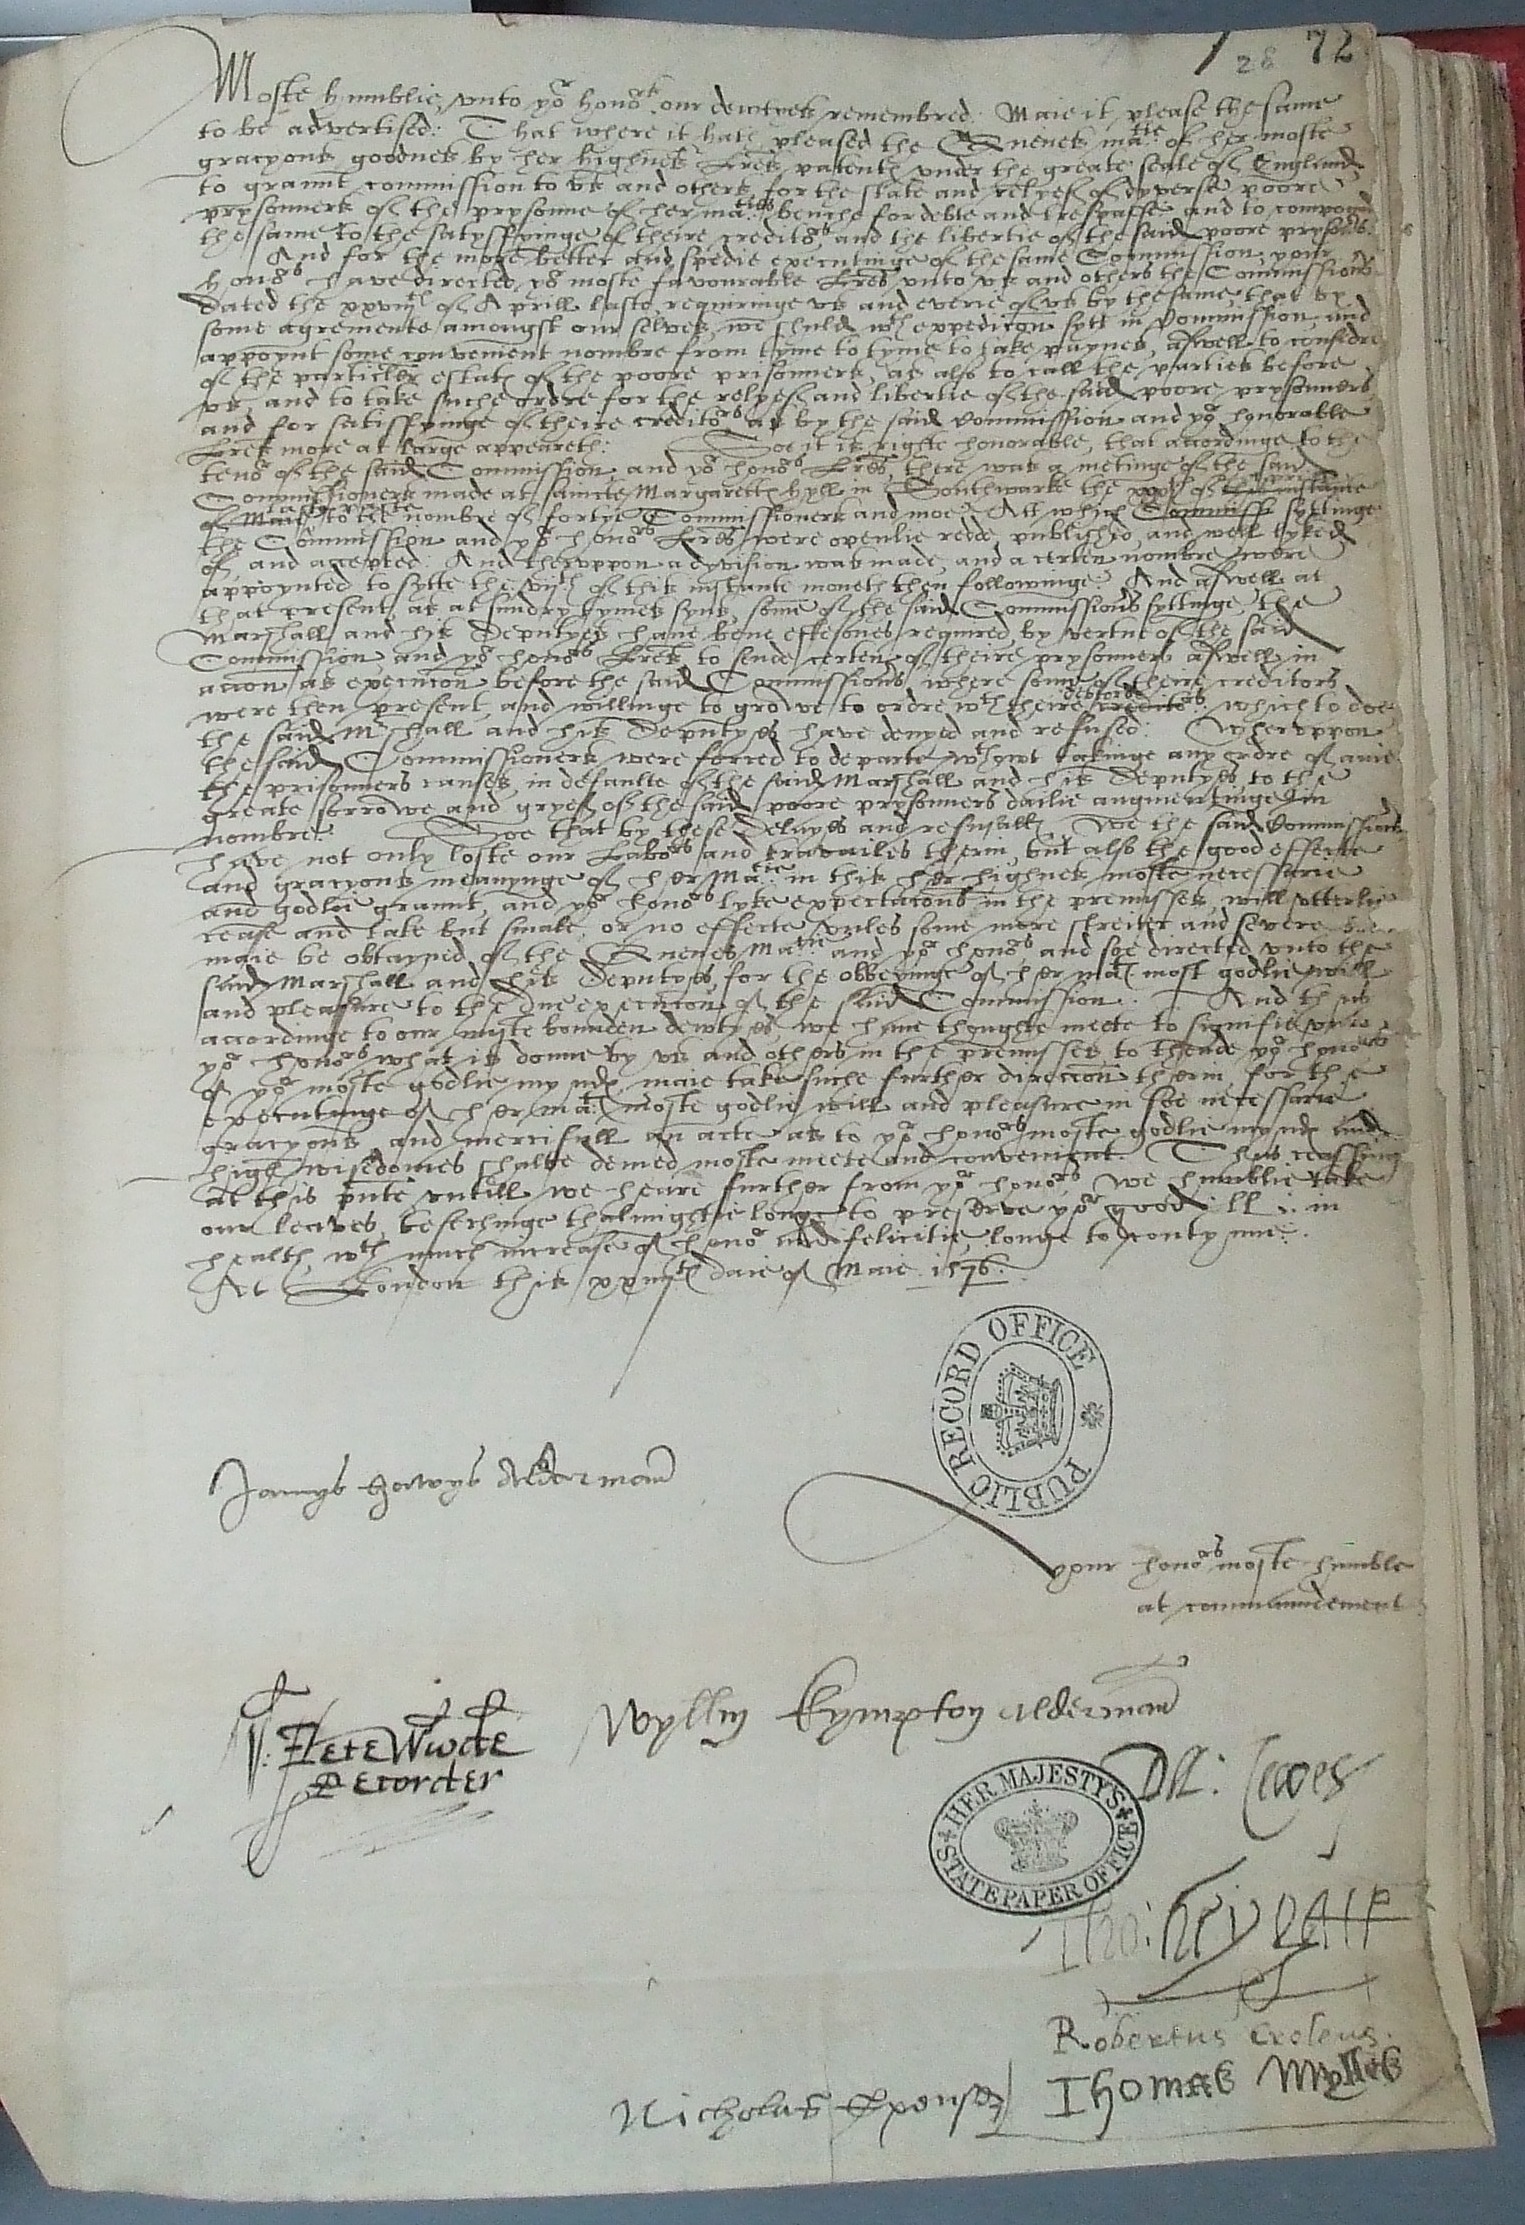 28 72
Moste humblie vnto yor honors our dewtyes remembred. Maie it please the same
to be advertised: That where it hath pleased the Quenes matie of her moste
gracyous goodnes by her highnes lres patente vnder the greate seale of England
to graunt commission to vs and others for the state and relyef of dyverse poore
prysonners of the prysonne of her maties benche for debte and trespasse and to compound
the same to the satysfyinge of theire creditors, and the libertie of the said poore prysonrs.
And for the more better and spedie executinge of the same Commission your
honors have directed yor moste favourable lres vnto vs and others the Commissionrs
Dated the of Aprill laste requiringe vs and everie of vs by the same, that by
some agremente amongst our selves, we shuld wth expedicon sytt in Commission, and
appoynt some convenient nombre from tyme to tyme to take paynes, aswell to considre
of the particler estate of the poore prisonners, as also to call the parties before
vs, and to take suche ordre for the relyef and libertie of the said poore prysonners
and for satisfyinge of theire creditors as by the said Commission and yor honorable
lres more at large appeareth: Soe it is righte honorable, that accordinge to the
tenor of the said Commission, and yor honors lres, there was a metinge of the said
Commissioners made at saincte Margarette hyll in Southwarke the of
of Maie to the nombre of fortye Commissioners and moe. Att which Commiss syttinge
the Commission and yor honors lres were openlie redde, published, and well lyked
of, and accepted. And thervppon a dyvision was made, and a certen nombre were
appoynted to sytte the vijth of this instante moneth then followinge. And aswell at
that present, as at sundry tymes syns, some of the said Commissionrs syttinge, the
Marshall and his Deputyes have bene eftesones required by vertue of the said
Commission and yor honors lres to sende certen of theire prysonners aswell in
accon as execucon before the said Commissionrs, where some of theire creditors
were then present, and willinge to growe to ordre wth theire creditors debtors. which to doe
the said Mrshall and his Deputyes have denyed and refused. Whervppon
the said Commissioners were forced to departe wthowt takinge any ordre of anie
the prisonners causes, in defaulte of the said Marshall and his Deputyes, to the
greate sorrowe and gryef of the said poore prysonners dailie augmentinge in
nombre. Soe that by these delayes and refusalls, We the said Commissionrs
have not only loste our labors and travailes therin, but also the good effecte
and gracyous meanynge of her Matie in this her highnes moste necessarie
and godlie graunt, and yor honors lyke expectacons in the premisses, will vtterlie
cease and take but smale, or no effecte vnles some more streiter and severe
maie be obtayned of the Quenes Matie and yor honors and soe directed vnto the
said Marshall and his Deputyes, for the obbeyinge of her mats most godlie will
and pleasure to the due execucon of the said Commission. And thus
accordinge to our moste bounden dewtyes, we have thoughte meete to signifie vnto
yor honors what is donne by vs and others in the premisses, to thende yor honors
of yor moste godlie mynds, maie take suche further direccon therin, for the
executinge of her mats moste godlie will and pleasure in soe necessarie
gracyous and mercifull an acte, as to yor honors moste godlie mynds and
high wisedomes shalbe demed moste meete and convenient. Thus ceassyng
at this pnte vntill we heare further from yor honors, We humblie take
our leaves, besechinge thalmightie longe to preserve yor good ll: in
health, wth much increase of honor and felicitie, longe to contynue.
At London this daie of Maie. 1576.
PUBLIC RECORD OFFICE
Jamys Harvye Alderman
your honors moste humble
at commaundement
W: Fletewoode
Recorder
Wyllm Kympton Alderman
HER MAJESTY'S STATE PAPER OFFICE
D: Lewes
Tho:
Robertus Croleus.
Thomas Wylles
Nicholas